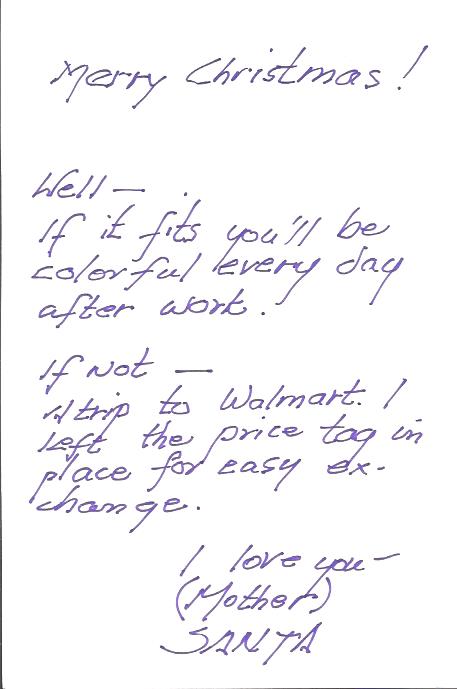 Merry Christmas!
Well —
If it fits you'll be
colorful every day
after work.
If Not —
A trip to Walmart. I
left the price tag in
place for easy ex-
change.
I love you —
(Mother)
SANTA